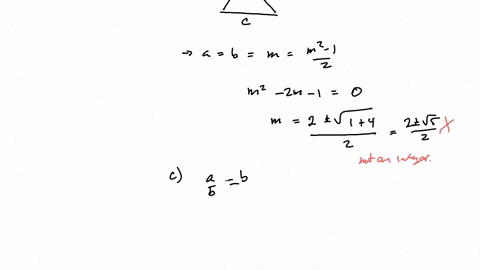 c
→ a = b = m = (m² - 1)/2
m² - 2m - 1 = 0
m = (2 ± √(1 + 4))/2 = (2 ± √5)/2 X
not an integer.
c) a/b = b